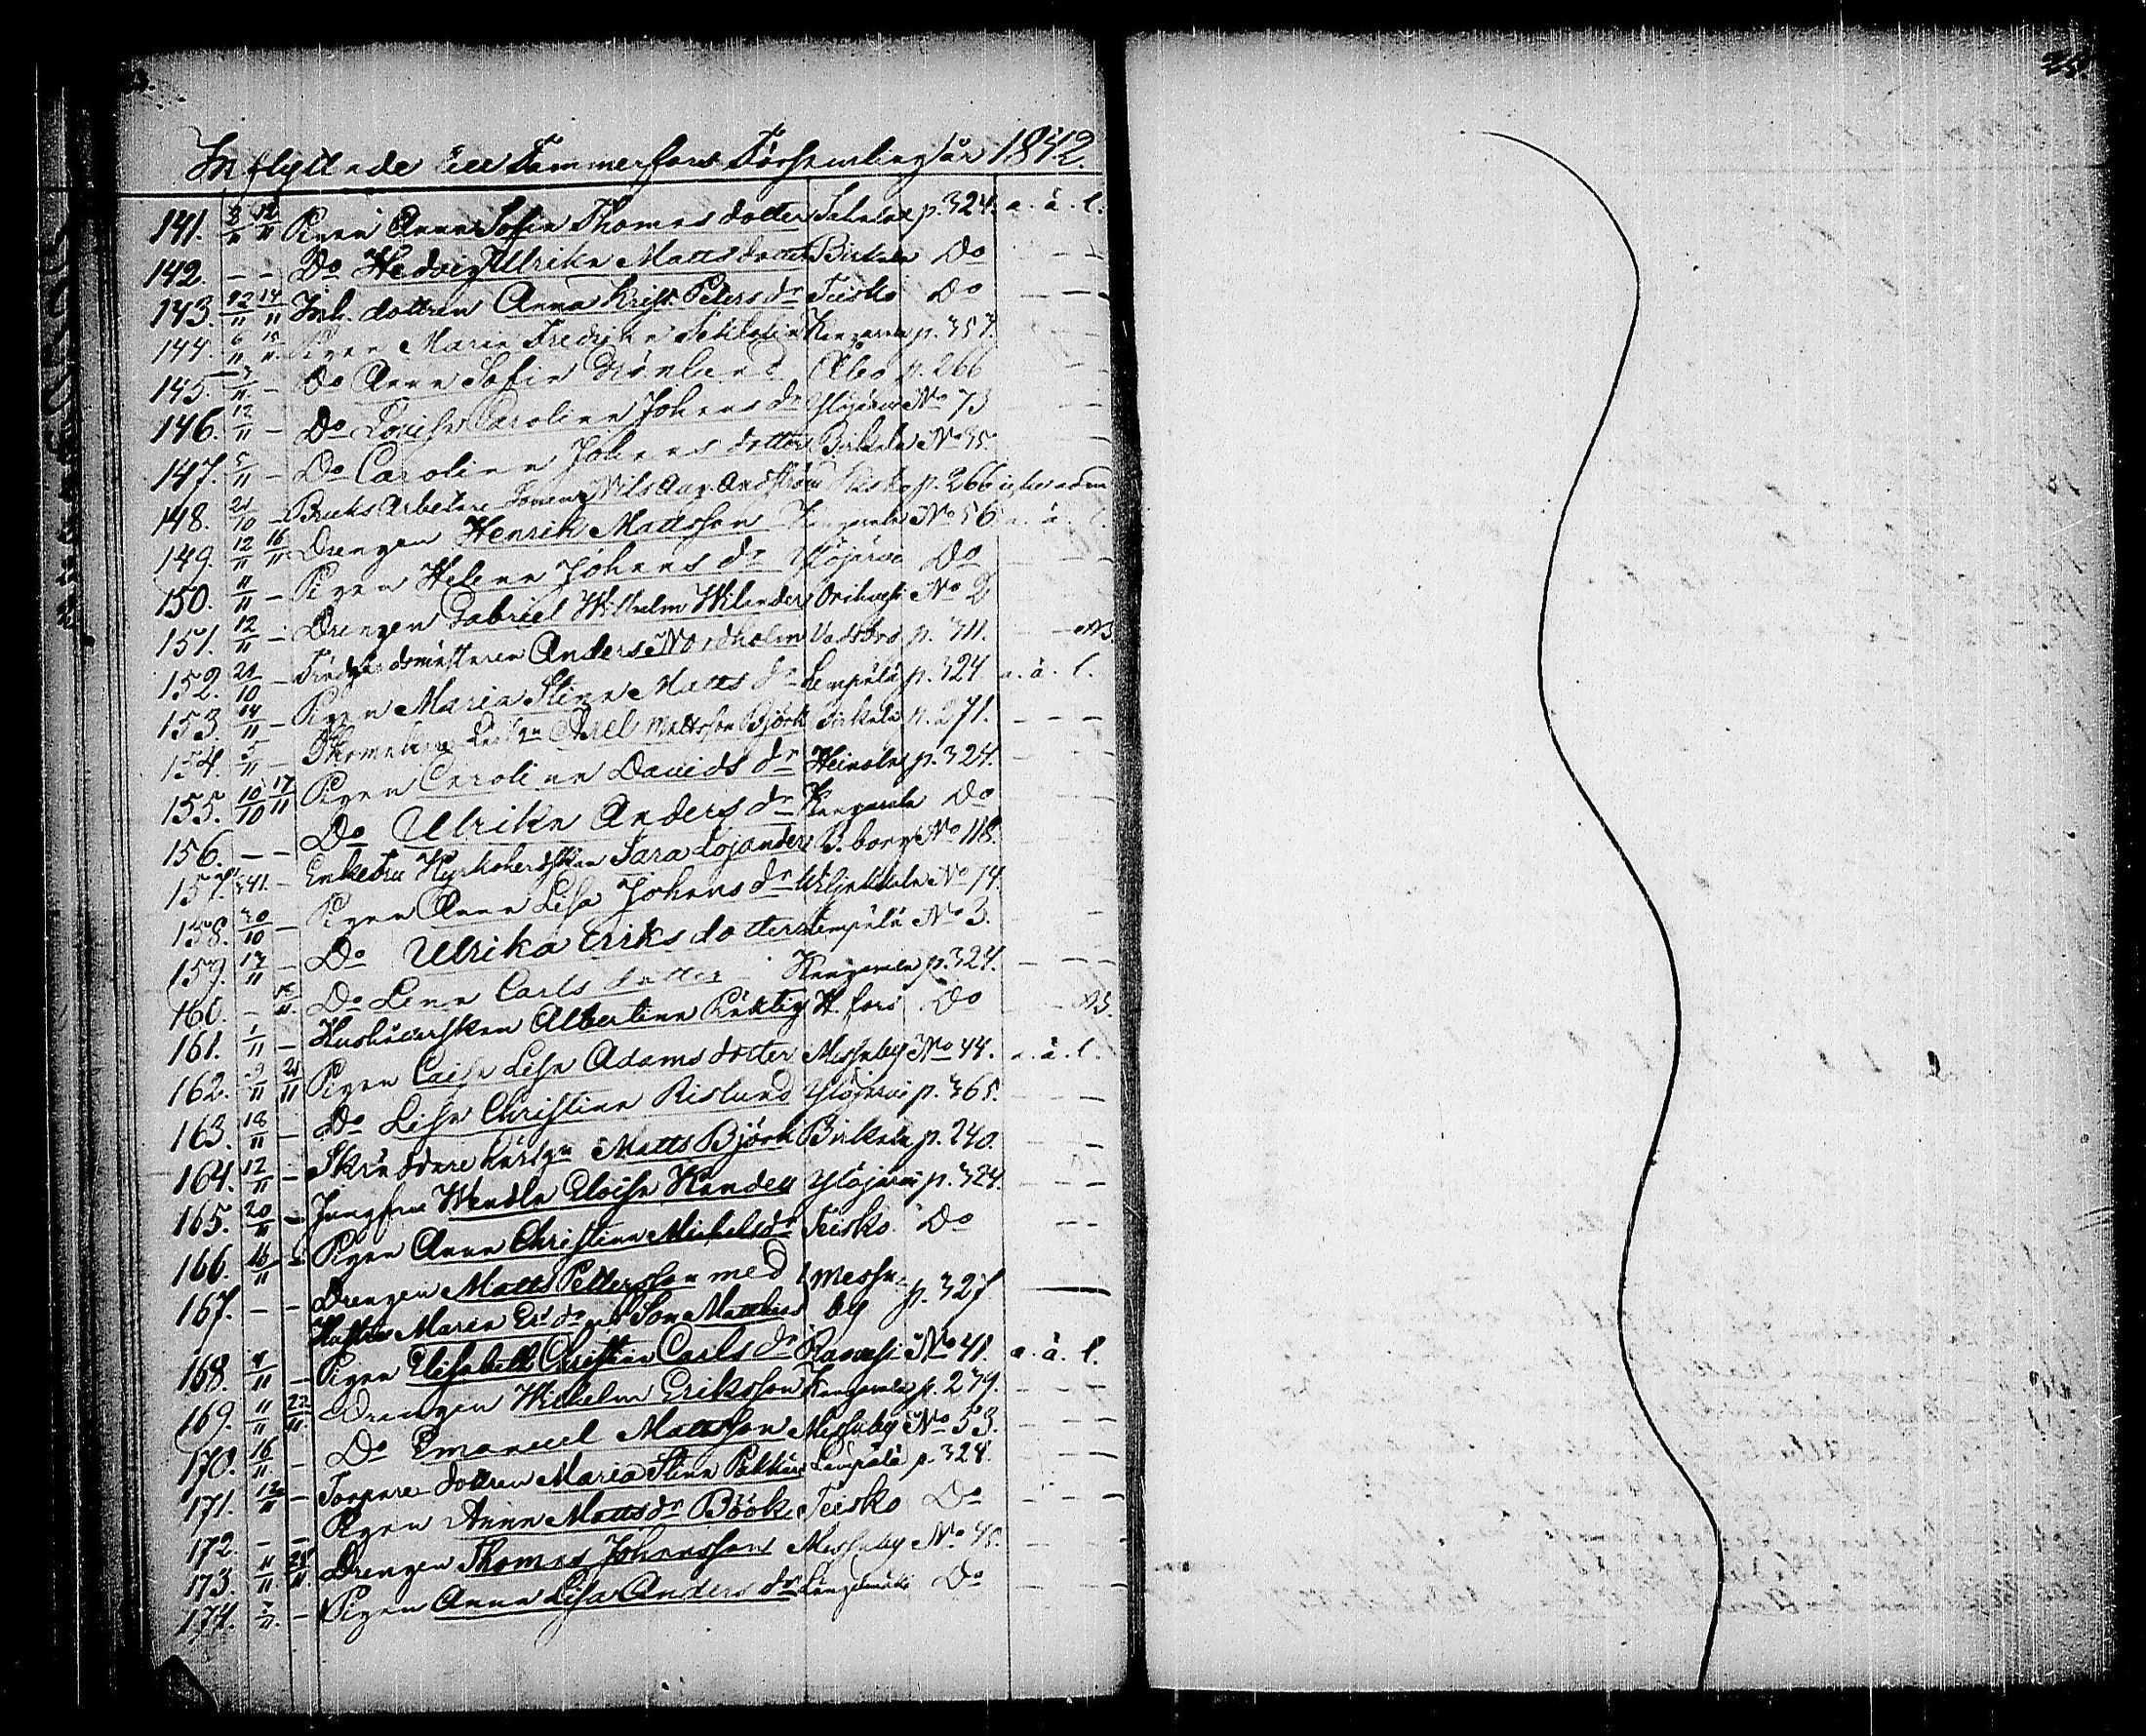 Inflyttade till Tammerfors Församling år 1842.
141. 3/11 12/11 Pigan Anna Sofia Thomas dotter p. 324. a. ä. l.
142. - - Do Hedvig Ulrika Matts dotter Birkala Do - -
143. 12/11 14/11 Inh. dottren Anna Krist. Peters dr Teisko Do - - -
144. 6/11 15/11 Pigan Maria Fredrika Kangasala p. 357. - -
145. 7/11 - Do Anna Sofia Grönlund Åbo p. 266 - -
146. 12/11 - Do Lovisa Carolina Johans dr Ylöjärvi No 73 - - -
147. 5/11 - Do Carolina Johans dotter Birkala No 35. - -
148. 21/10 - Bruks Arbetare Sonen Nils Aug. Andström p. 266
149. 12/11 16/11 Drengen Henrik Mattsson Kangasala No 56 a. ä. l.
150. 11/11 - Pigan Helena Johans dr Ylöjärvi Do - - -
151. 12/11 - Drengen Gabriel Wilhelm Wilander Orihvesi No 2
152. 21/10 - Trädgårdsmästaren Anders Nordholm Vadsbro p. 311. - - NB.
153. 14/11 - Pigan Maria Stina Matts dr Lempälä p. 324 a. ä. l.
154. 5/11 - Carl Mattsson Björk Birkala p. 271. - - -
155. 10/10 17/11 Pigan Carolina Davids dr Heinola p. 324. - - -
156. - - Do Ulrika Anders dr Kangasala Do - - -
157. - Enkefru Sara Lojander B. borg No 118. - -
158. 30/10 - Pigan Anna Lisa Johans dr No 74.
159. 17/11 - Do Ulrika Eriks dotter Lempälä No 3. -
160. - Do Lena Carls dotter Kangasala p. 324. - - -
161. 1/11 - Hushållerskan Albertina H. fors Do - NB.
162. 9/11 21/11 Pigan Caisa Lisa Adams dotter Messuby No 44. a. ä. l.
163. 18/11 - Do Lisa Christina Risland Ylöjärvi p. 365. - - -
164. 12/11 - Skräddare Lärlgn Matts Björk Birkala p. 240. - -
165. 20/11 - Jungfru Wendla Eloisa Ylöjärvi p. 324. - - -
166. 16/11 - Pigan Anna Christina Michelsdr Teisko Do - -
167. - - Drengen Matts Pettersson med Messu- p. 327 -
Hustru Maria Er. dr och Son Matthias by
168. 4/11 - Pigan Elisabeth Christina Carls dr No 41. a. ä. l.
169. 11/11 22/11 Drengen Wilhelm Eriksson Kangasala p. 239. - - -
170. 16/11 - Do Emanuel Mattsson Messuby No 53. - - -
171. 12/11 - Torpare dottren Maria Stina Lempälä p. 324. - -
172. - - Pigan Anna Mattsdr Böök Teisko Do - - -
173. 11/11 25/11 Drengen Thomas Johansson Messuby No 45. - -
174. 7/11 - Pigan Anna Lisa Anders dr Längelmäki Do - -